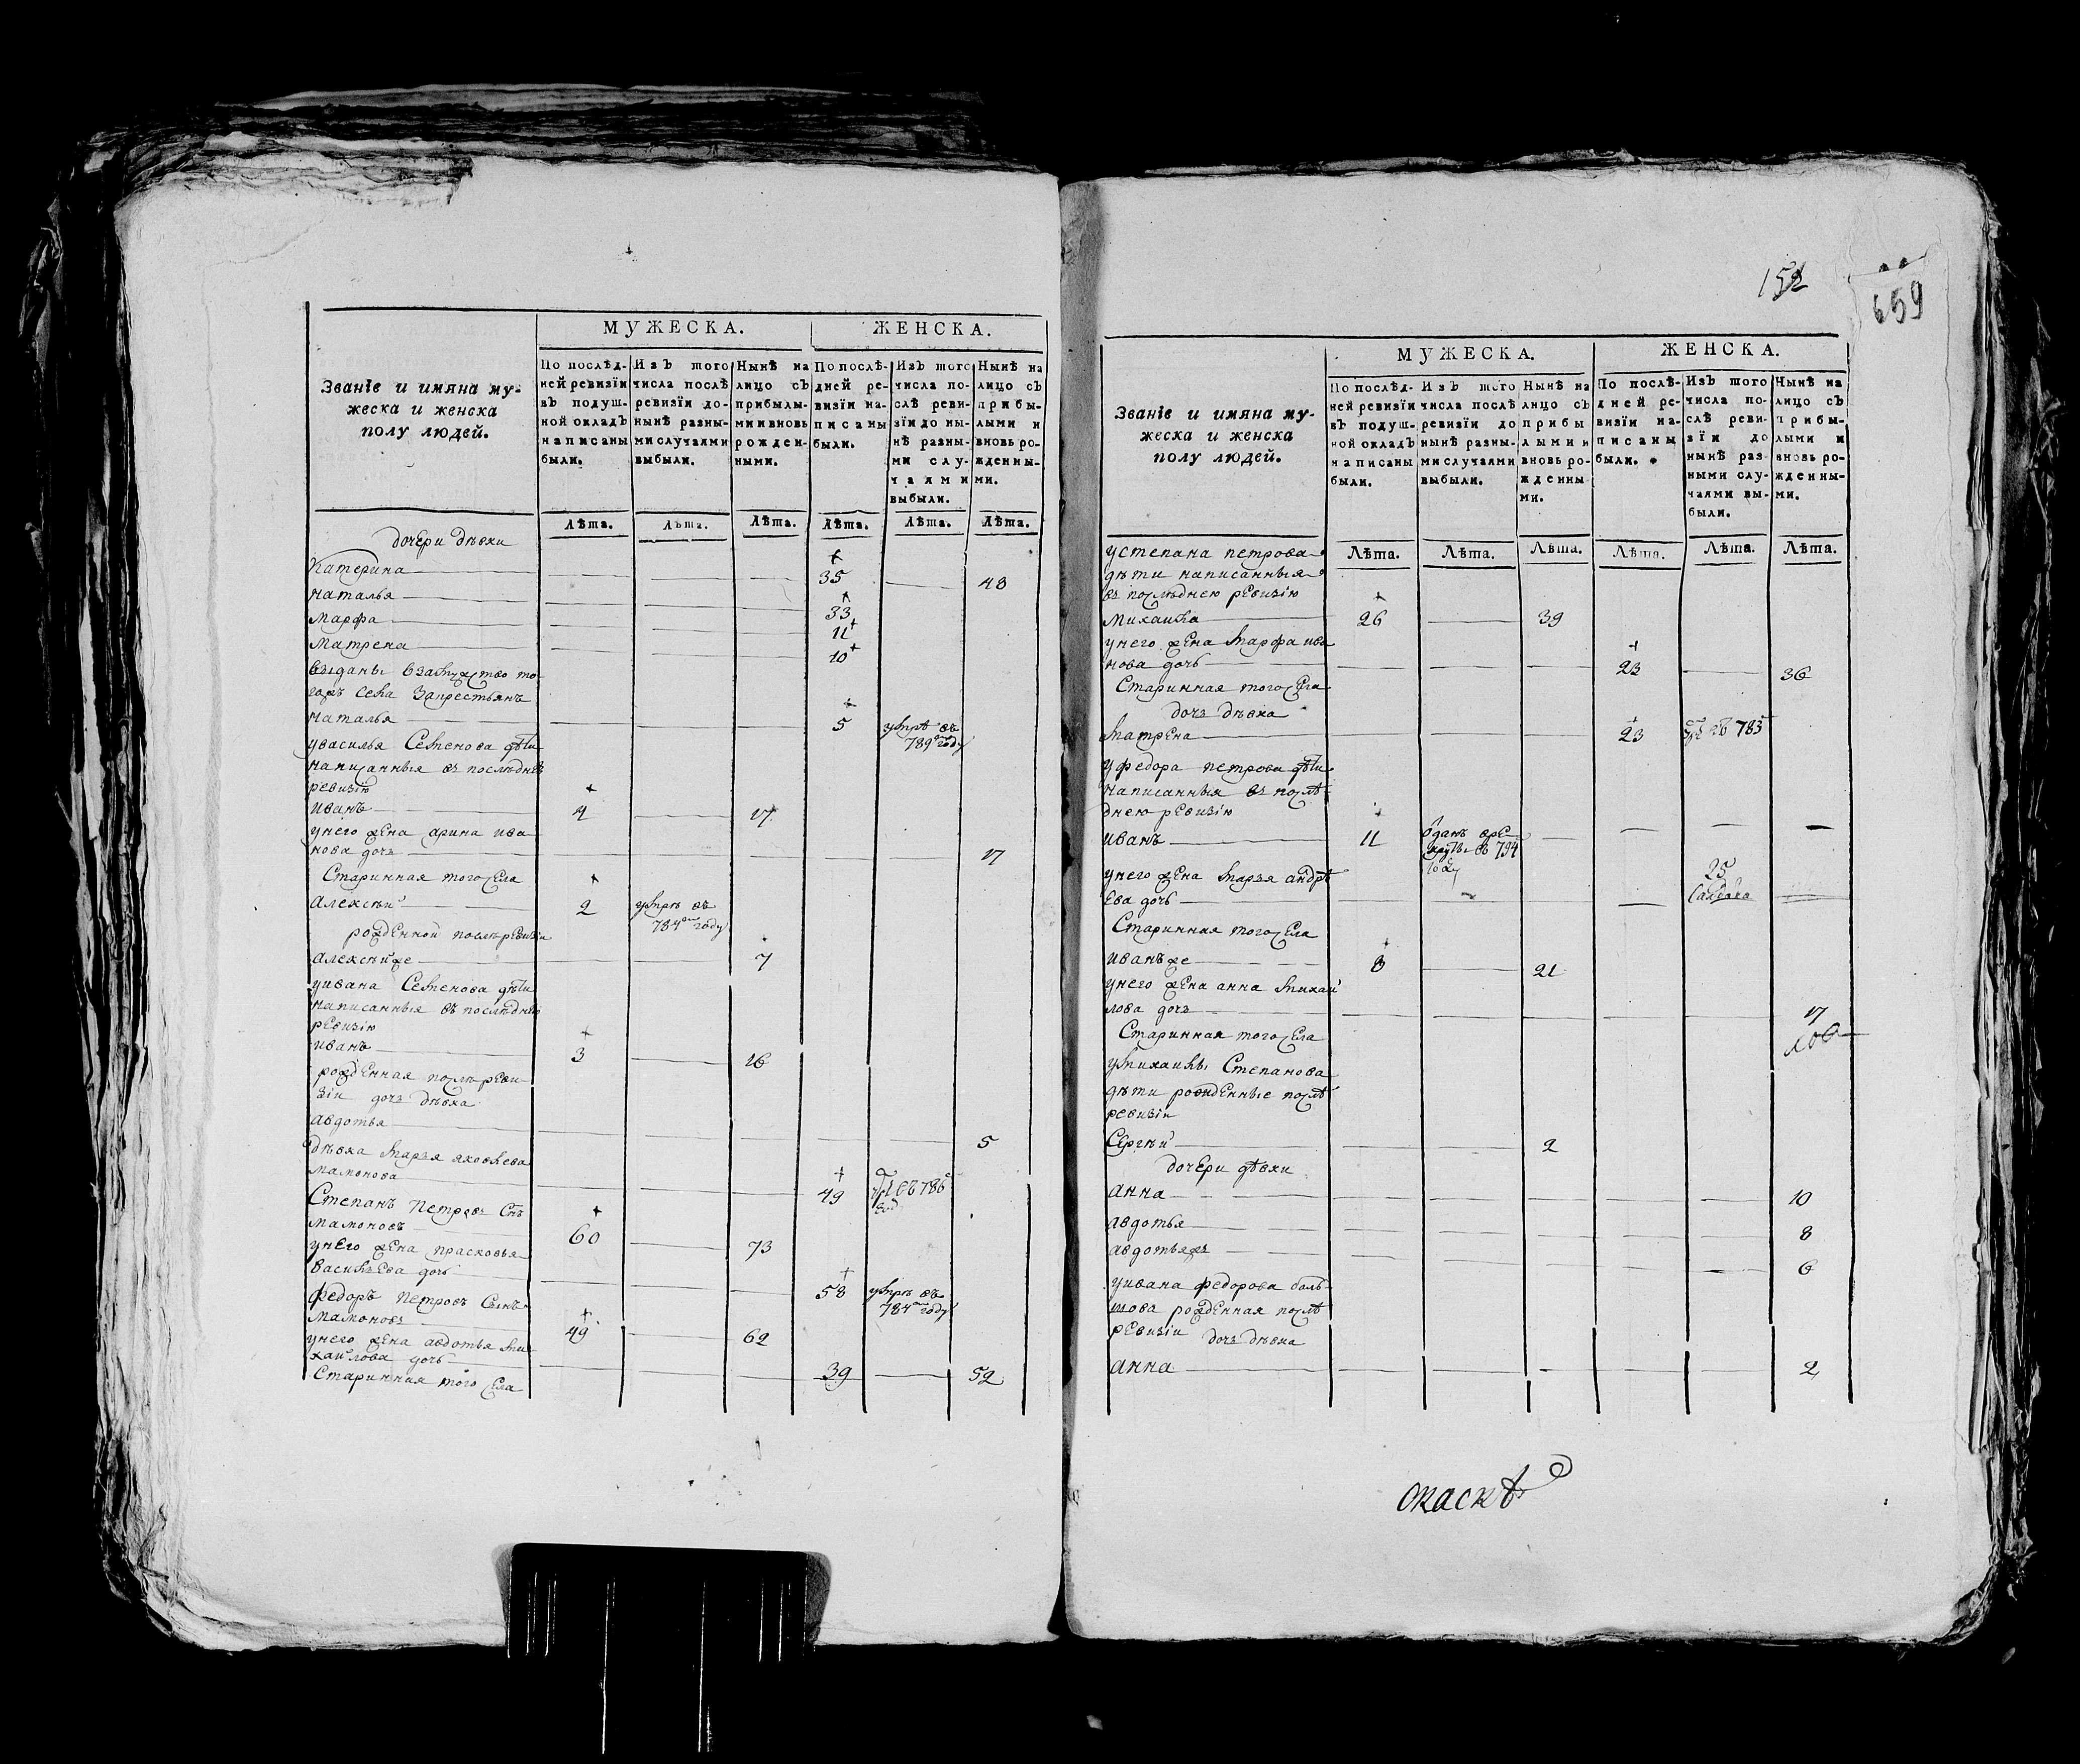 МУЖЕСКА. ЖЕНСКА.
Званїе и имяна му-
жеска и женска
полу людей.
По послѣд-
ней ревизїи
въ подуш-
ной окладъ
написаны
были.
Изъ того
числа послѣ
ревизїи до-
нынѣ разны-
ми случаями
выбыли.
Нынѣ на
лицо съ
прибылы-
ми и вновь
рожден-
ными.
По послѣ-
дней ре-
визїи на-
писаны
были.
Изъ того
числа по-
слѣ реви-
зїи до ны-
нѣ разны-
ми слу-
чаями
выбыли.
Нынѣ на
лицо съ
прибы-
лыми и
вновь ро-
жденны-
ми.
Лѣта. Лѣта. Лѣта. Лѣта. Лѣта. Лѣта.
дочери дѣвки
Катерина 35 48
наталья 33
марфа 11
матрена 10
выданы взамужство то
гожъ села за крестьянъ
наталья 5 умре въ
789 году
у василья Семенова дѣти
написанныя въ последнею
ревизію
иванъ 4 17
у него жена арина ива
нова дочь 17
Старинная того села
алексѣй 2 умре въ
784 году
рожденной после ревизіи
алексѣй же 7
у ивана Семенова дѣти
написанныя въ последнею
ревизію
иванъ 3 16
рожденная после реви
зіи дочь дѣвка
авдотья 5
дѣвка марья яковлева
мамонова 49 786
Степанъ Петровъ Снъ
мамоновъ 60 73
у него жена прасковья
васильева дочь 58 умре въ
784 году
федоръ петровъ Сынъ
мамоновъ 49 62
у него жена авдотья ми
хайлова дочь 39 52
Старинная того села
152
659
МУЖЕСКА. ЖЕНСКА.
Званїе и имяна му-
жеска и женска
полу людей.
По послѣд-
ней ревизїи
въ подуш-
ной окладъ
написаны
были.
Изъ того
числа послѣ
ревизїи до
нынѣ разны-
ми случаями
выбыли.
Нынѣ на
лицо съ
прибы
лыми и
вновь ро-
жденны
ми.
По послѣ-
дней ре-
визїи на-
писаны
были.
Изъ того
числа по-
слѣ реви-
зїи до
нынѣ раз-
ными слу-
чаями вы-
были.
Нынѣ на
лицо съ
прибы-
лыми и
вновь ро-
жденны-
ми.
Лѣта. Лѣта. Лѣта. Лѣта. Лѣта. Лѣта.
у степана петрова
дѣти написанныя
въ последнею ревизію
михайла 26 39
у него жена марфа ива
нова дочь 23 36
Старинная того села
дочь дѣвка
матрена 23 783
у федора петрова дѣти
написанныя въ послѣ
днею ревизію
иванъ 11 Отданъ в ре
круты въ 794
году
у него жена марья андрѣ 25
ева дочь
Старинная того села
иванъ же 8 21
у него жена анна михай
лова дочь 17
Старинная того села
у михайлы Степанова
дѣти рожденные послѣ
ревизіи
Сергѣй 2
дочери дѣвки
анна 10
авдотья 8
авдотья жъ 6
у ивана федорова боль
шова рожденная послѣ
ревизіи дочь дѣвка
анна 2